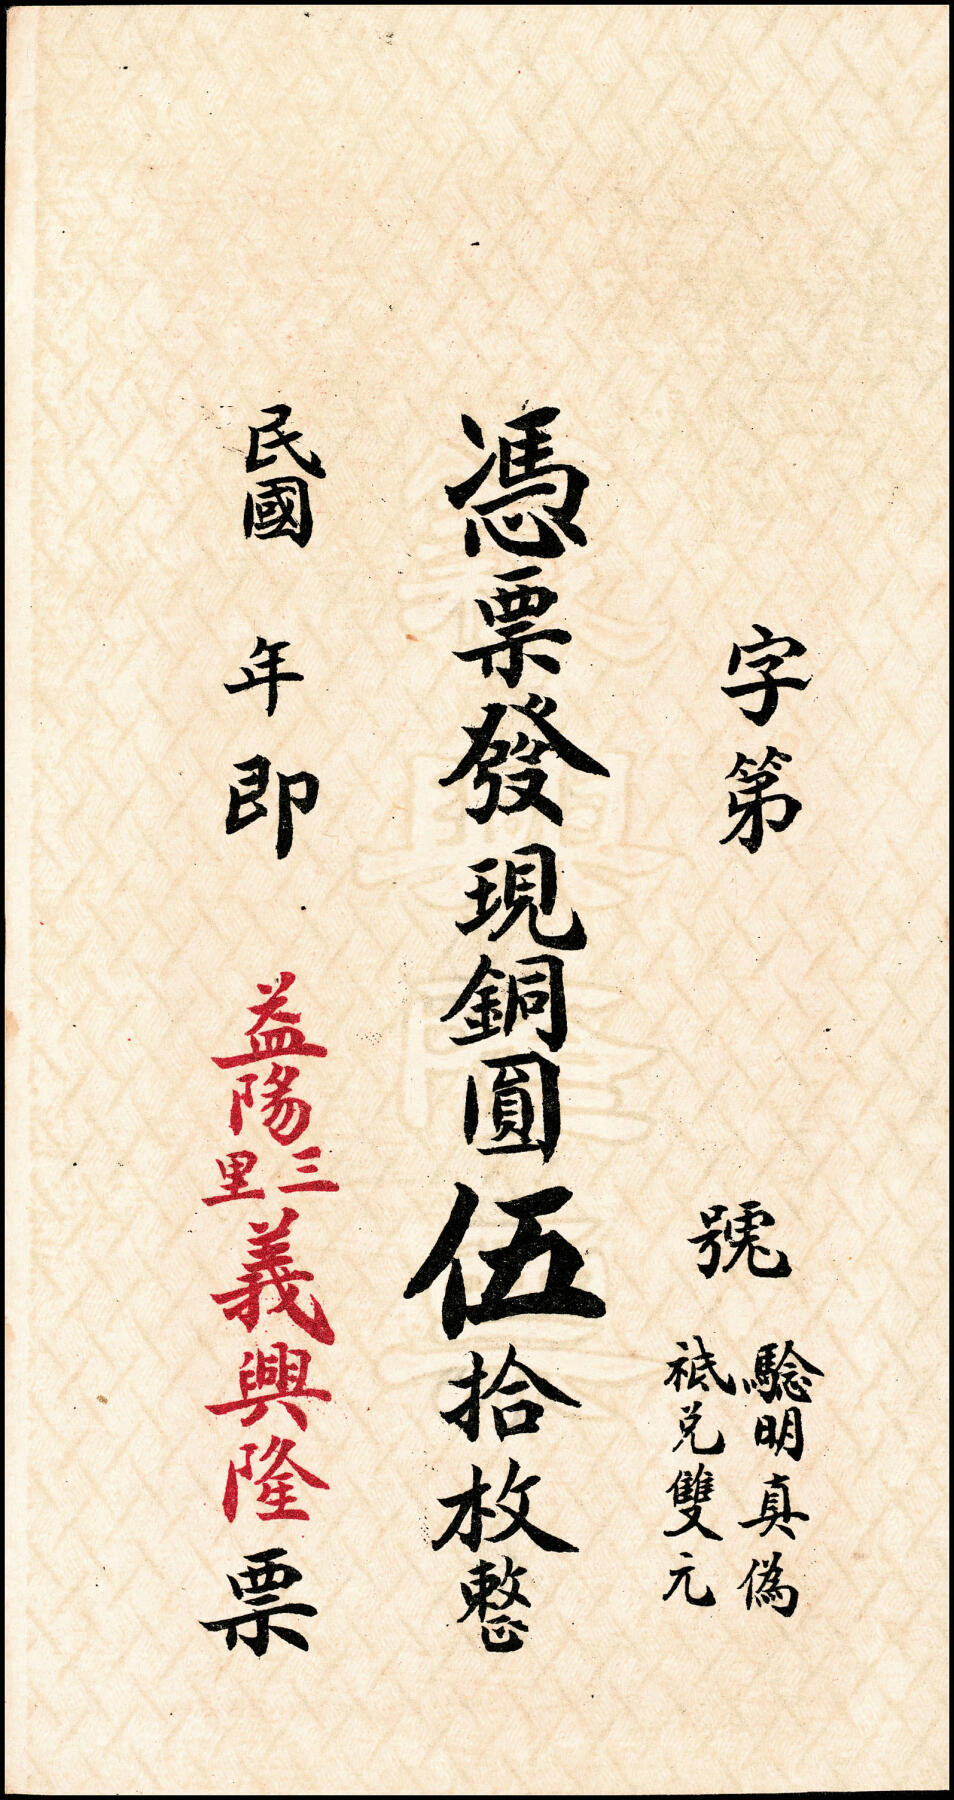 字第 號
驗明真偽
祗兌雙元
憑票發現銅圓伍拾枚整
民國 年 即 益陽三里義興隆票